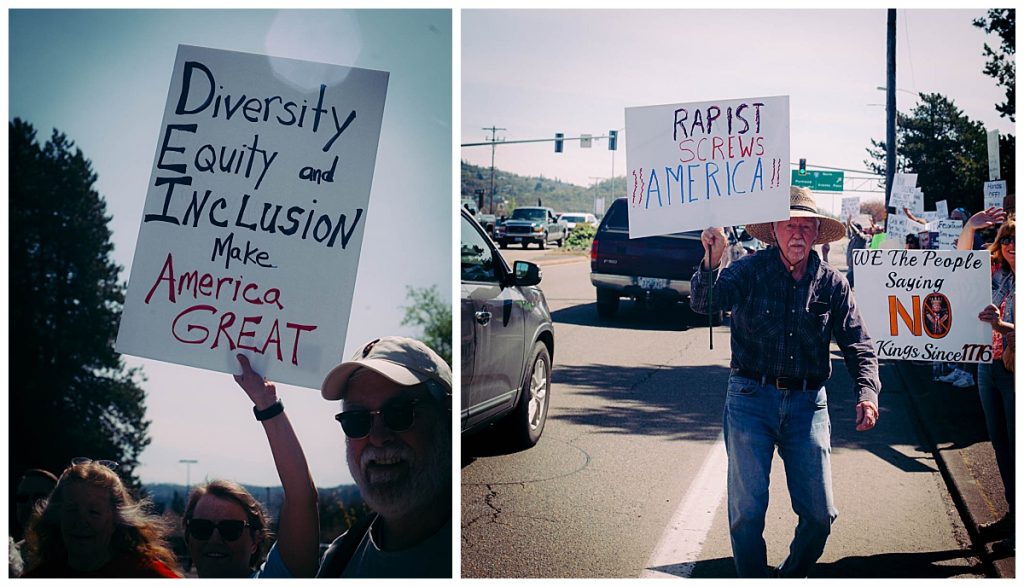 Diversity
Equity and
Inclusion
Make
America
GREAT
RAPIST
SCREWS
!!AMERICA!!
WE The People
Saying
NO
Kings Since 1776
HANDS
OFF!